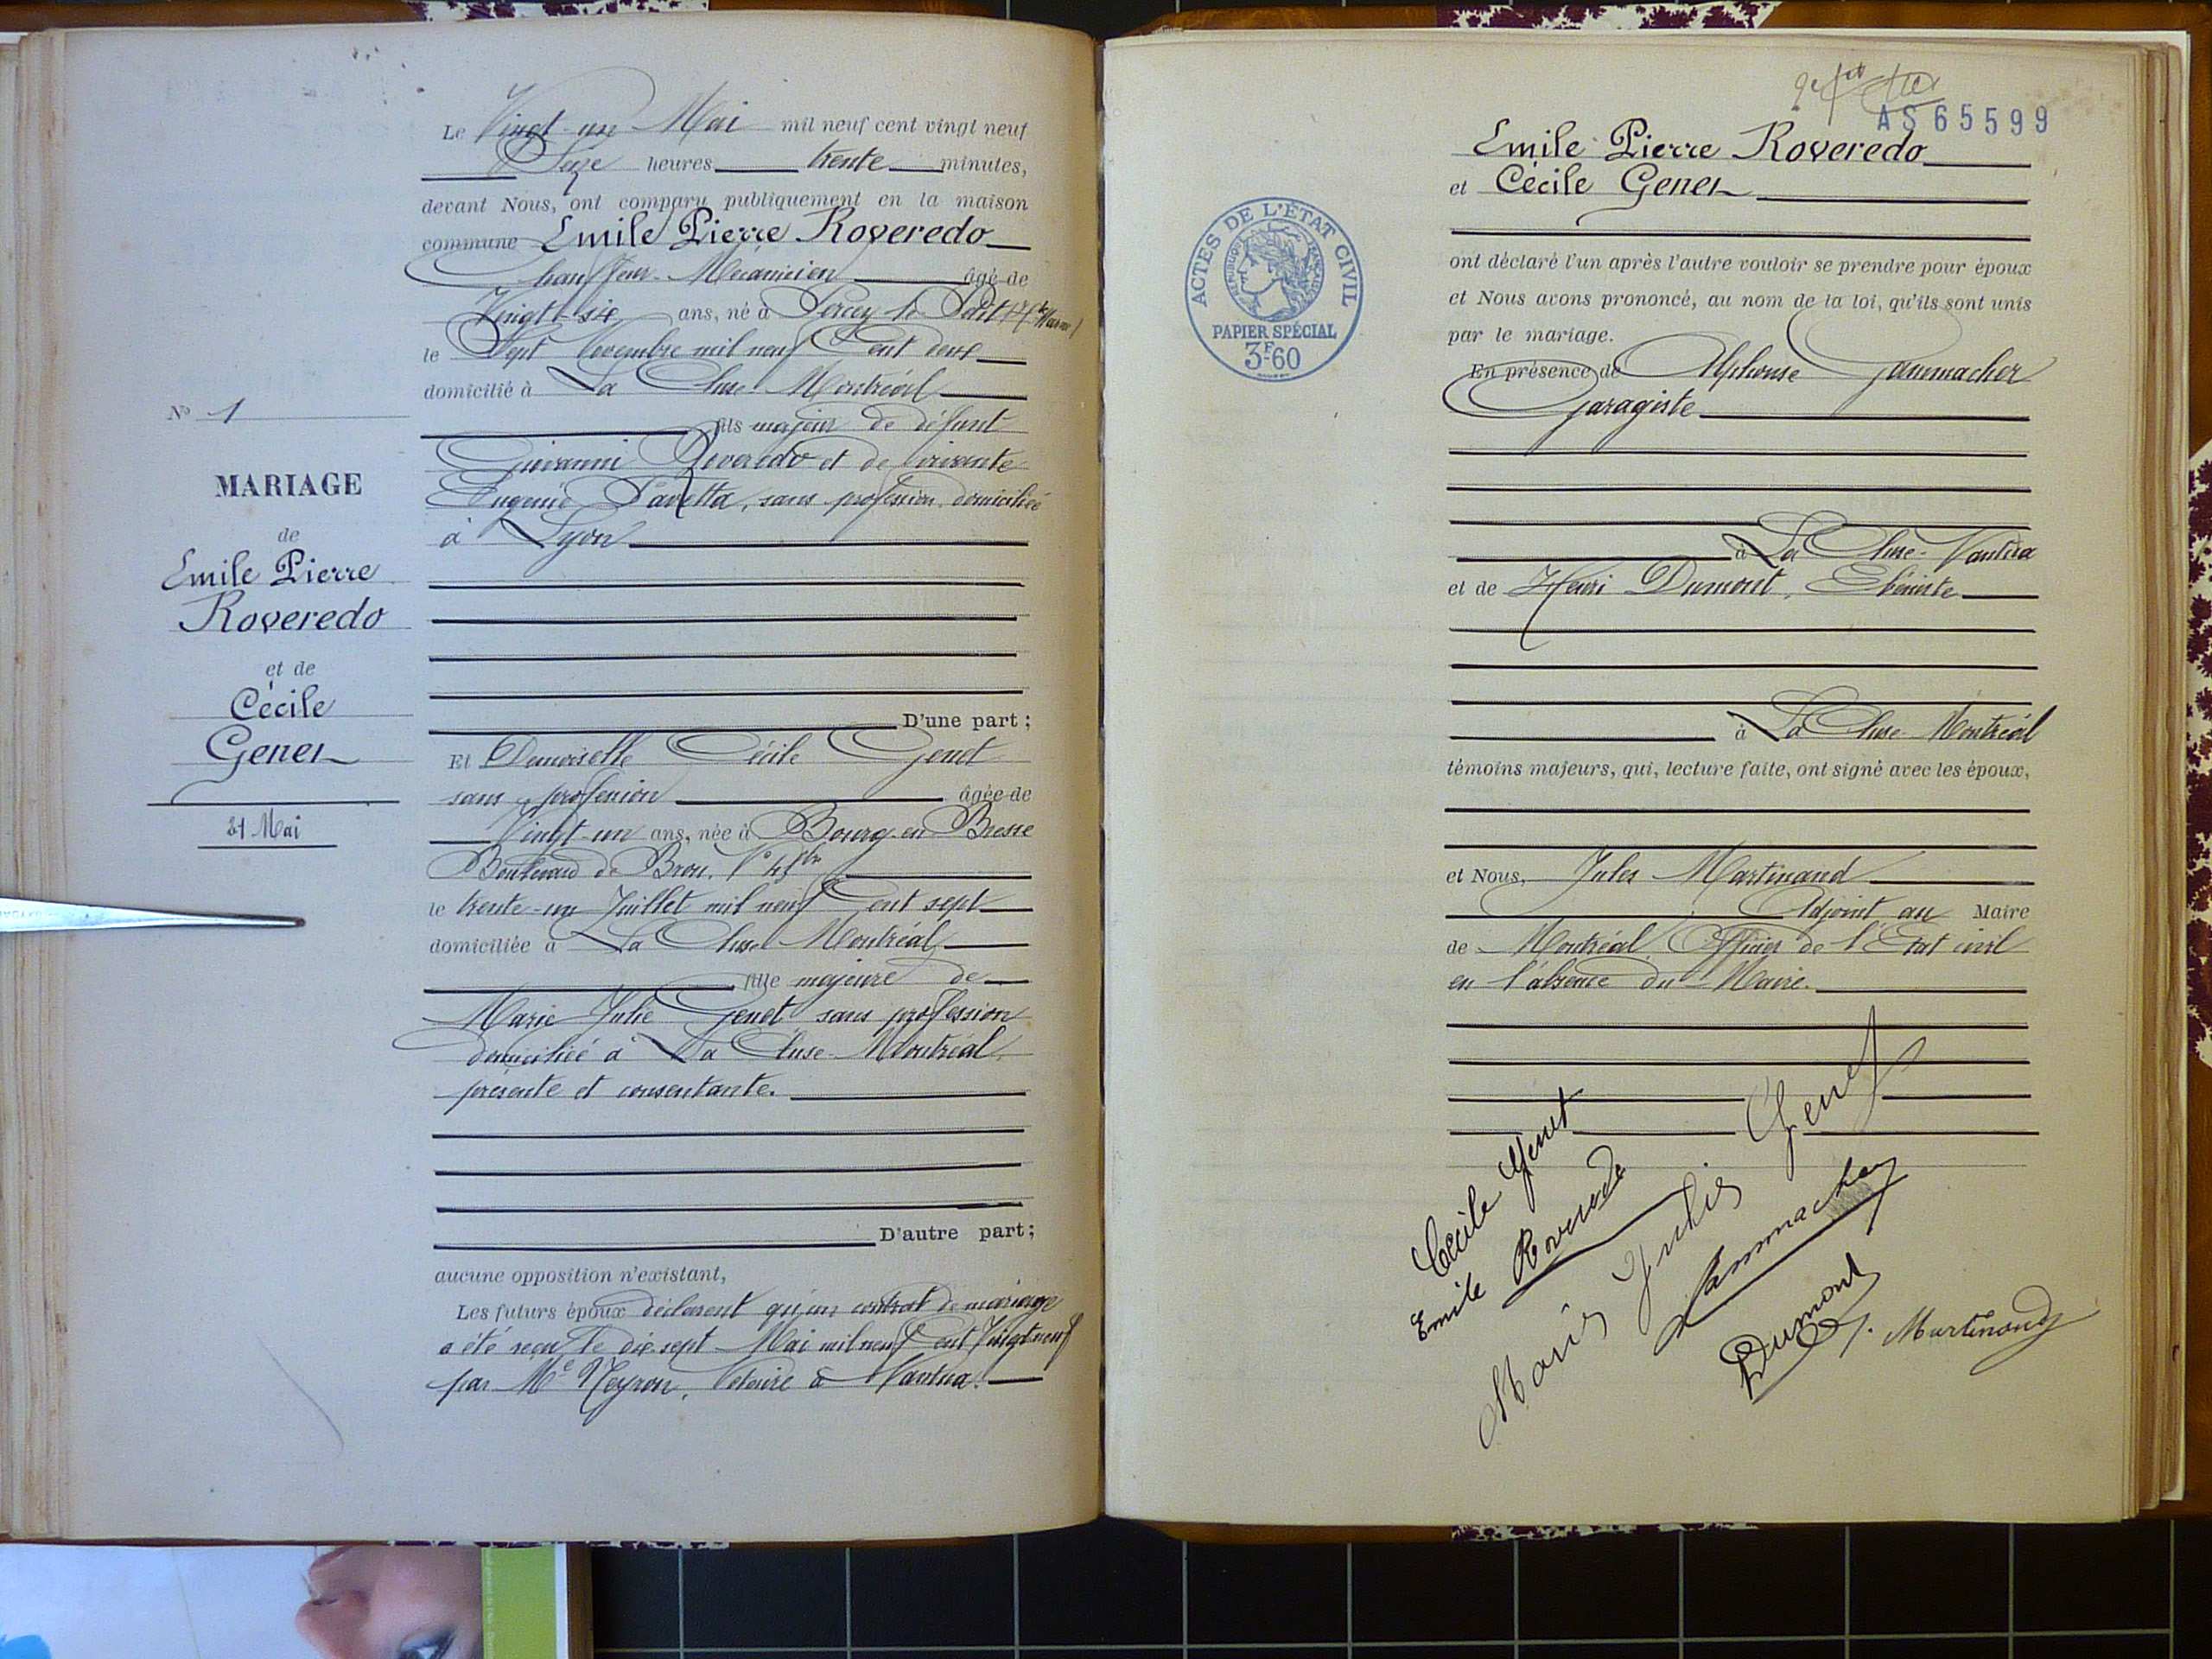 N° 1
MARIAGE
de
Emile Pierre
Roveredo
et de
Cécile
Genet
21 Mai
Le Vingt-un Mai mil neuf cent vingt neuf
Seize heures trente minutes,
devant Nous, ont comparu publiquement en la maison
commune Emile Pierre Roveredo
Chauffeur-Mécanicien âgé de
Vingt-six ans, né à Percey le Petit (Hte Marne)
le Sept Novembre mil neuf Cent deux
domicilié à La Cluse-Montréal
fils majeur de défunt
Giovanni Roveredo et de vivante
Eugenie Pavetta, sans profession, domiciliée
à Lyon
D'une part ;
Et Demoiselle Cécile Genet
sans profession âgée de
Vingt-un ans, née à Bourg-en-Bresse
Boulevard de Brou, N° 43 bis
le trente-un Juillet mil neuf Cent sept
domiciliée à La Cluse-Montréal,
fille majeure de
Marie Julie Genet sans profession
domiciliée à La Cluse-Montréal,
présente et consentante.
D'autre part ;
aucune opposition n'existant,
Les futurs époux déclarent qu'un contrat de mariage
a été reçu le dix-sept Mai mil neuf Cent Vingt neuf
par Me Neyron, Notaire à Nantua.
AS 65599
Emile Pierre Roveredo
et Cécile Genet
ACTES DE L'ÉTAT CIVIL
RÉPUBLIQUE FRANÇAISE
PAPIER SPÉCIAL
3F-60
ont déclaré l'un après l'autre vouloir se prendre pour époux
et Nous avons prononcé, au nom de la loi, qu'ils sont unis
par le mariage.
En présence de Alphonse Jammacher
Garagiste
à La Cluse-Nantua
et de Henri Dumont, Ebéniste
à La Cluse-Montréal
témoins majeurs, qui, lecture faite, ont signé avec les époux,
et Nous, Jules Martinand
Adjoint au Maire
de Montréal, Officier de l'Etat civil
en l'absence du Maire.
Cécile Genet
Emile Roveredo
Marie Julie Genet
Jammacher
Dumont
J. Martinand